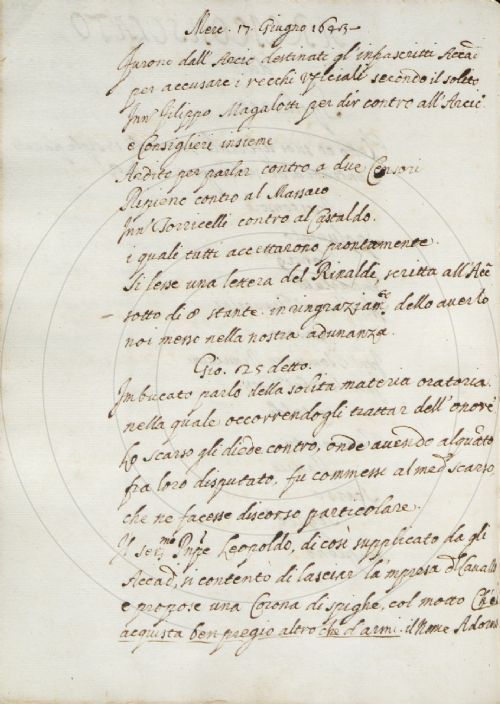 Merc. 17. Giugno 1643
Furono dall' Arcic. destinati gl' infrascritti Accad.
per accusare i vecchi ufiziali secondo il solito
Inn. Filippo Magalotti per dir contro all' Arcic.
e Consiglieri insieme
Ardito per parlar contro a due Censori
Ripieno contro al Massaio
Inn. Torricelli contro al Castaldo.
i quali tutti accettarono prontamente.
Si lesse una lettera del Rinaldi, scritta all' Acc.
sotto di 8 stante in ringraziam.to dello averlo
noi messo nella nostra adunanza.
Gio. 25 detto.
Imbucato parlò della solita materia oratoria
nella quale occorrendogli trattar dell' onore
lo scarso gli diede contro, onde avendo alquāto
fra loro disputato, fu commesso al med.º scarso,
che ne facesse discorso particolare.
Il ser.mo Pnpe Leopoldo, di così supplicato da gli
Accad., si contentò di lasciar la 'mpresa d'l Cavallo
e propose una Corona di spighe, col motto Che
acquista ben pregio altro che d'armi. il nome Adorno